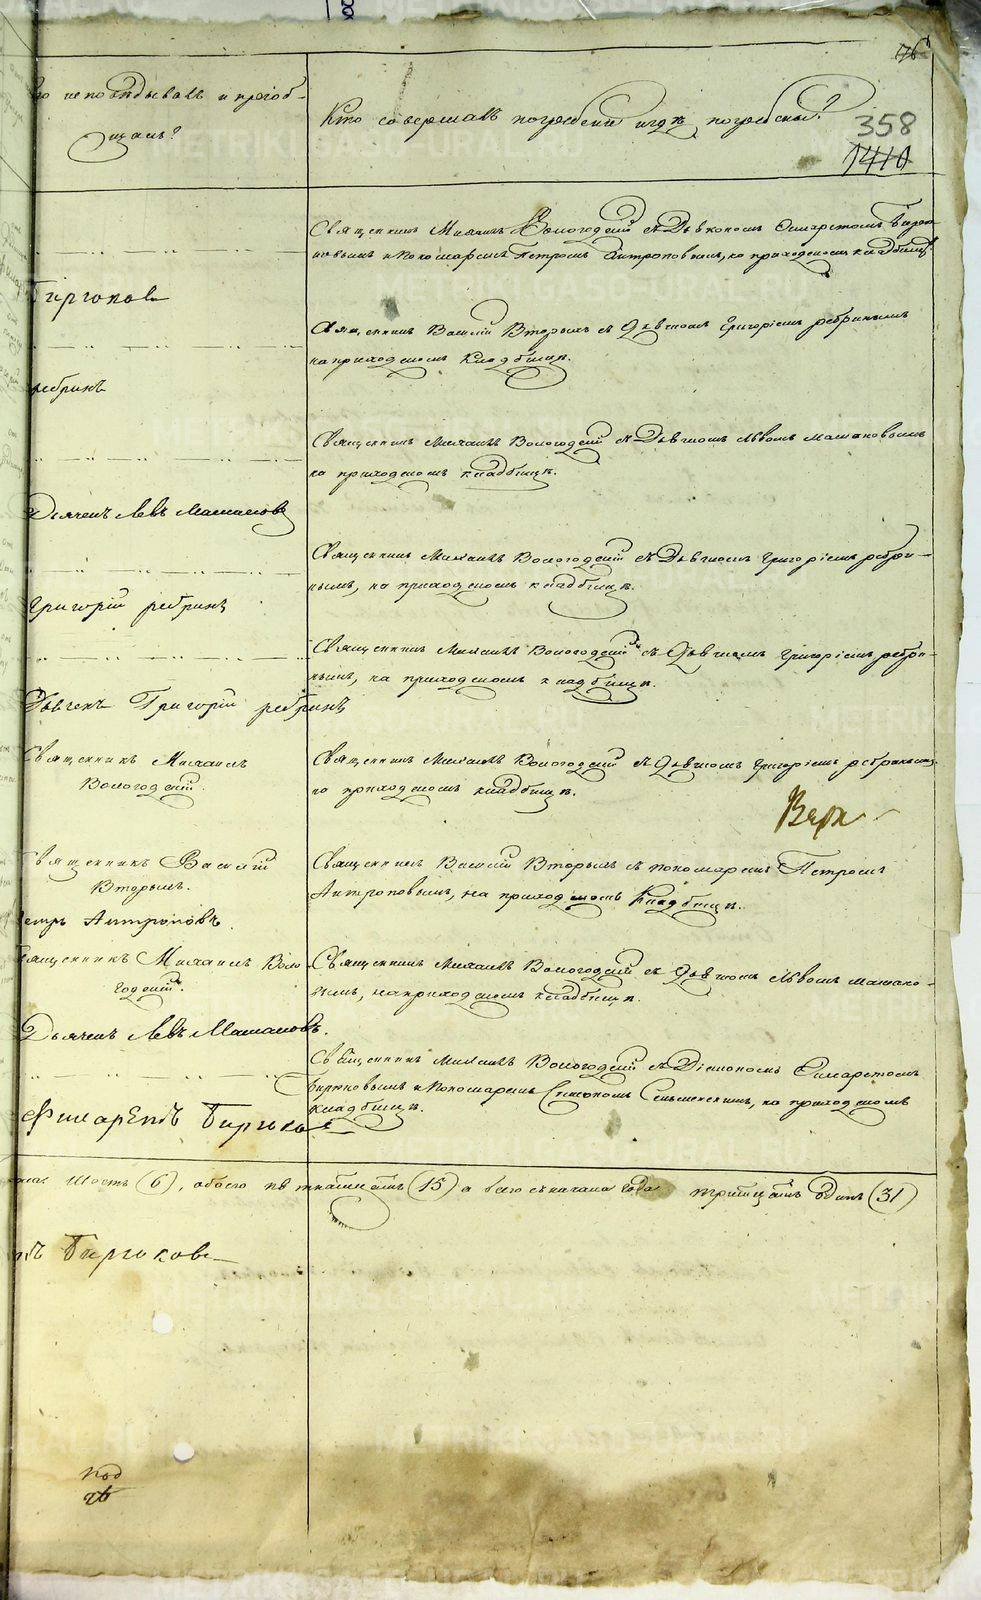 76
Кто исповѣдывалъ и пріоб-
щалъ?
Кто совершалъ погребеніе и гдѣ погребены?
358
1410
Священникъ Михаилъ Вологодскій съ Дьякономъ Филаретомъ Бирю-
ковымъ и Пономаремъ Петромъ Антроповымъ, на приходскомъ кладбищѣ.
Бирюковъ
Священникъ Василій Вторыхъ съ Дьячкомъ Григоріемъ ребринымъ
на приходскомъ Кладбищѣ.
ребринъ
Священникъ Михаилъ Вологодскій съ Дьячкомъ Львомъ Машановымъ
на приходскомъ кладбищѣ.
Дьячекъ Левъ Машановъ
Священникъ Михаилъ Вологодскій съ Дьячкомъ Григоріемъ ребри-
нымъ, на приходскомъ кладбищѣ.
Григорій ребринъ
Священникъ Михаилъ Вологодскій съ Дьячкомъ Григоріемъ ребри-
нымъ, на приходскомъ кладбищѣ.
Дьячекъ Григорій ребринъ
Священникъ Михаилъ
Вологодскій.
Священникъ Михаилъ Вологодскій съ Дьячкомъ Григоріемъ ребринымъ
на приходскомъ кладбищѣ.
Священникъ Василій
Вторыхъ.
Священникъ Василій Вторыхъ съ пономаремъ Петромъ
Антроповымъ, на приходскомъ Кладбищѣ.
Петръ Антроповъ.
Священникъ Михаилъ Воло-
годскій.
Священникъ Михаилъ Вологодскій съ Дьячкомъ Львомъ Машано-
вымъ, на приходскомъ кладбищѣ.
Дьячекъ Левъ Машановъ.
Священникъ Михаилъ Вологодскій съ Діакономъ Филаретомъ
Бирюковымъ и Пономаремъ на приходскомъ
кладбищѣ.
Филаретъ Бирюковъ
шесть (6), обоего пятнатцать (15) а всего съ начала года тритцать Одинъ (31)
Бирюковъ